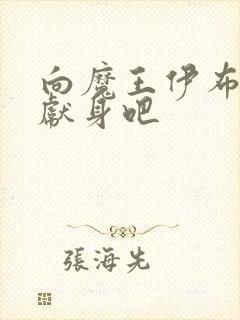 向魔王伊布
獻身吧
張海先